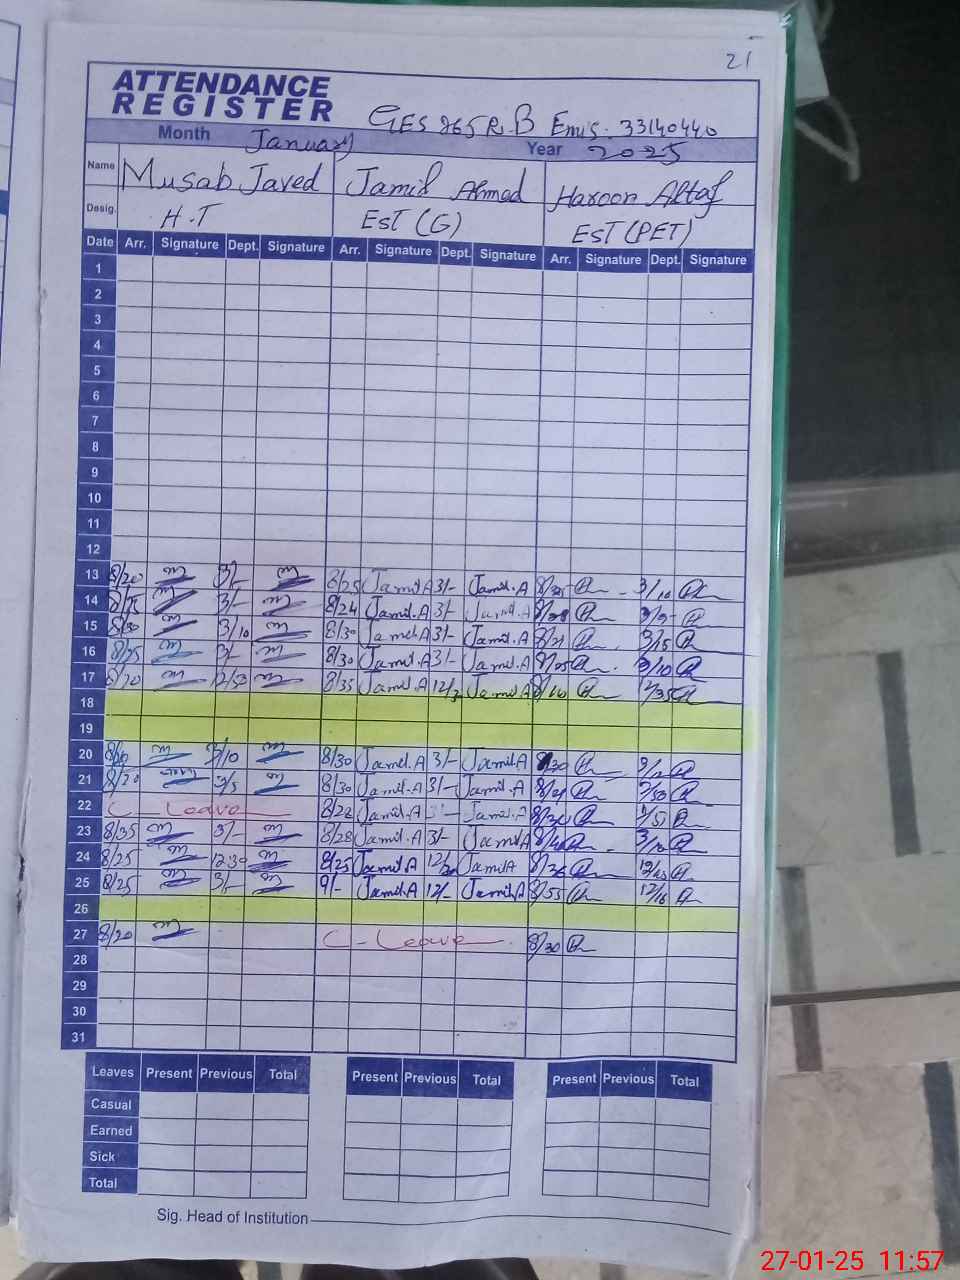 21
ATTENDANCE
REGISTER
GES 265 R.B Emis. 33140440
Month January Year 2025
Name Musab Javed Jamil Ahmad Haroon Altaf
Desig. H.T EST (G) EST (PET)
Date Arr. Signature Dept. Signature Arr. Signature Dept. Signature Arr. Signature Dept. Signature
1
2
3
4
5
6
7
8
9
10
11
12
13 8/20 3/- 8/25 Jamil A 3/- Jamil.A 3/10
14 3/- 8/24 Jamil.A 3/- Jamil A
15 8/30 3/10 8/30 Jamil.A 3/- Jamil.A 3/15
16 8/25 3/- 8/30 Jamil.A 3/- Jamil.A 3/10
17 8/20 8/35 Jamil.A Jamil A 12/35
18
19
20 3/10 8/30 Jamil.A 3/- Jamil A 8/30
21 8/20 3/5 8/30 Jamil.A 3/- Jamil.A
22 C - Leave Jamil.A Jamil.A
23 8/35 3/- 8/28 Jamil.A 3/- Jamil A 3/10
24 8/25 1230 8/25 Jamil A Jamil A
25 8/25 3/- 9/- Jamil A 12/- Jamil.A 8/55 12/16
26
27 8/20 C - Leave 8/30
28
29
30
31
Leaves Present Previous Total Present Previous Total Present Previous Total
Casual
Earned
Sick
Total
Sig. Head of Institution
27-01-25 11:57